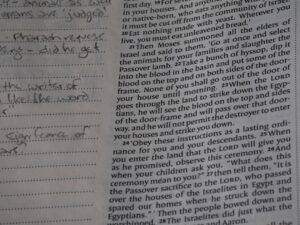 animals as well
are judged?
Pharaoh repress
did he get
the writer of
like the word
significance of
first day
or native-born,
it must be cut off from the community of Israel,
20 Eat nothing made with yeast. Wherever you
live, you must eat unleavened bread.
21 Then Moses summoned all the elders of
Israel and said to them, "Go at once and select
the animals for your families and slaughter the
Passover lamb. 22 Take a bunch of hyssop, dip it
into the blood in the basin and put some of the
blood on the top and on both sides of the door-
frame. None of you shall go out of the door of
your house until morning. 23 When the LORD
goes through the land to strike down the Egyp-
tians, he will see the blood on the top and sides
of the door-frame and will pass over that door-
way, and he will not permit the destroyer to enter
your houses and strike you down.
24 "Obey these instructions as a lasting ordi-
nance for you and your descendants. 25 When
you enter the land that the LORD will give you
as he promised, observe this ceremony. 26 And
when your children ask you, "What does this
ceremony mean to you?" 27 then tell them, "It is
the Passover sacrifice to the LORD, who passed
over the houses of the Israelites in Egypt and
spared our homes when he struck down the
Egyptians." Then the people bowed down and
worshipped. 28 The Israelites did just what the
and Aaron.